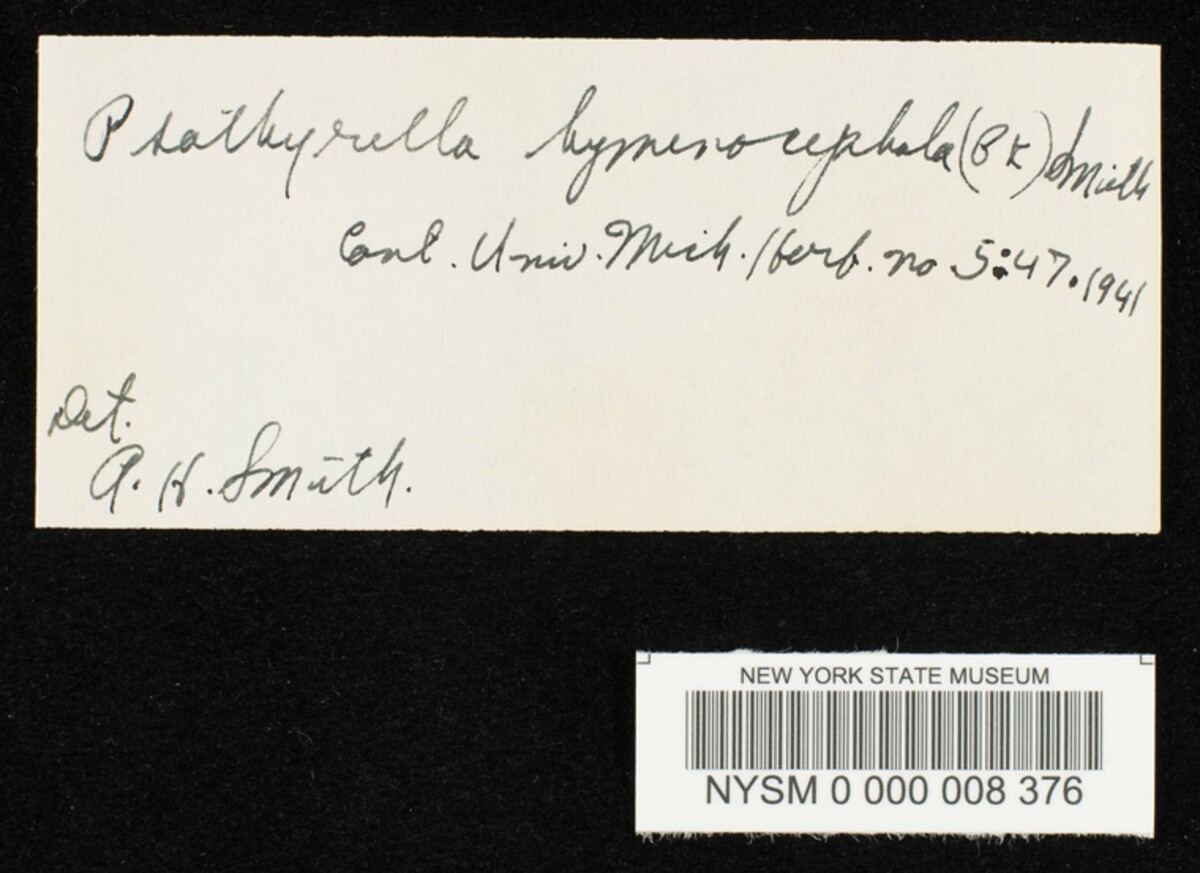 Psathyrella hymenocephala (Pk) Smith
Cont. Univ. Mich. Herb. no 5:47. 1941
Det.
A. H. Smith.
NEW YORK STATE MUSEUM
NYSM 0 000 008 376